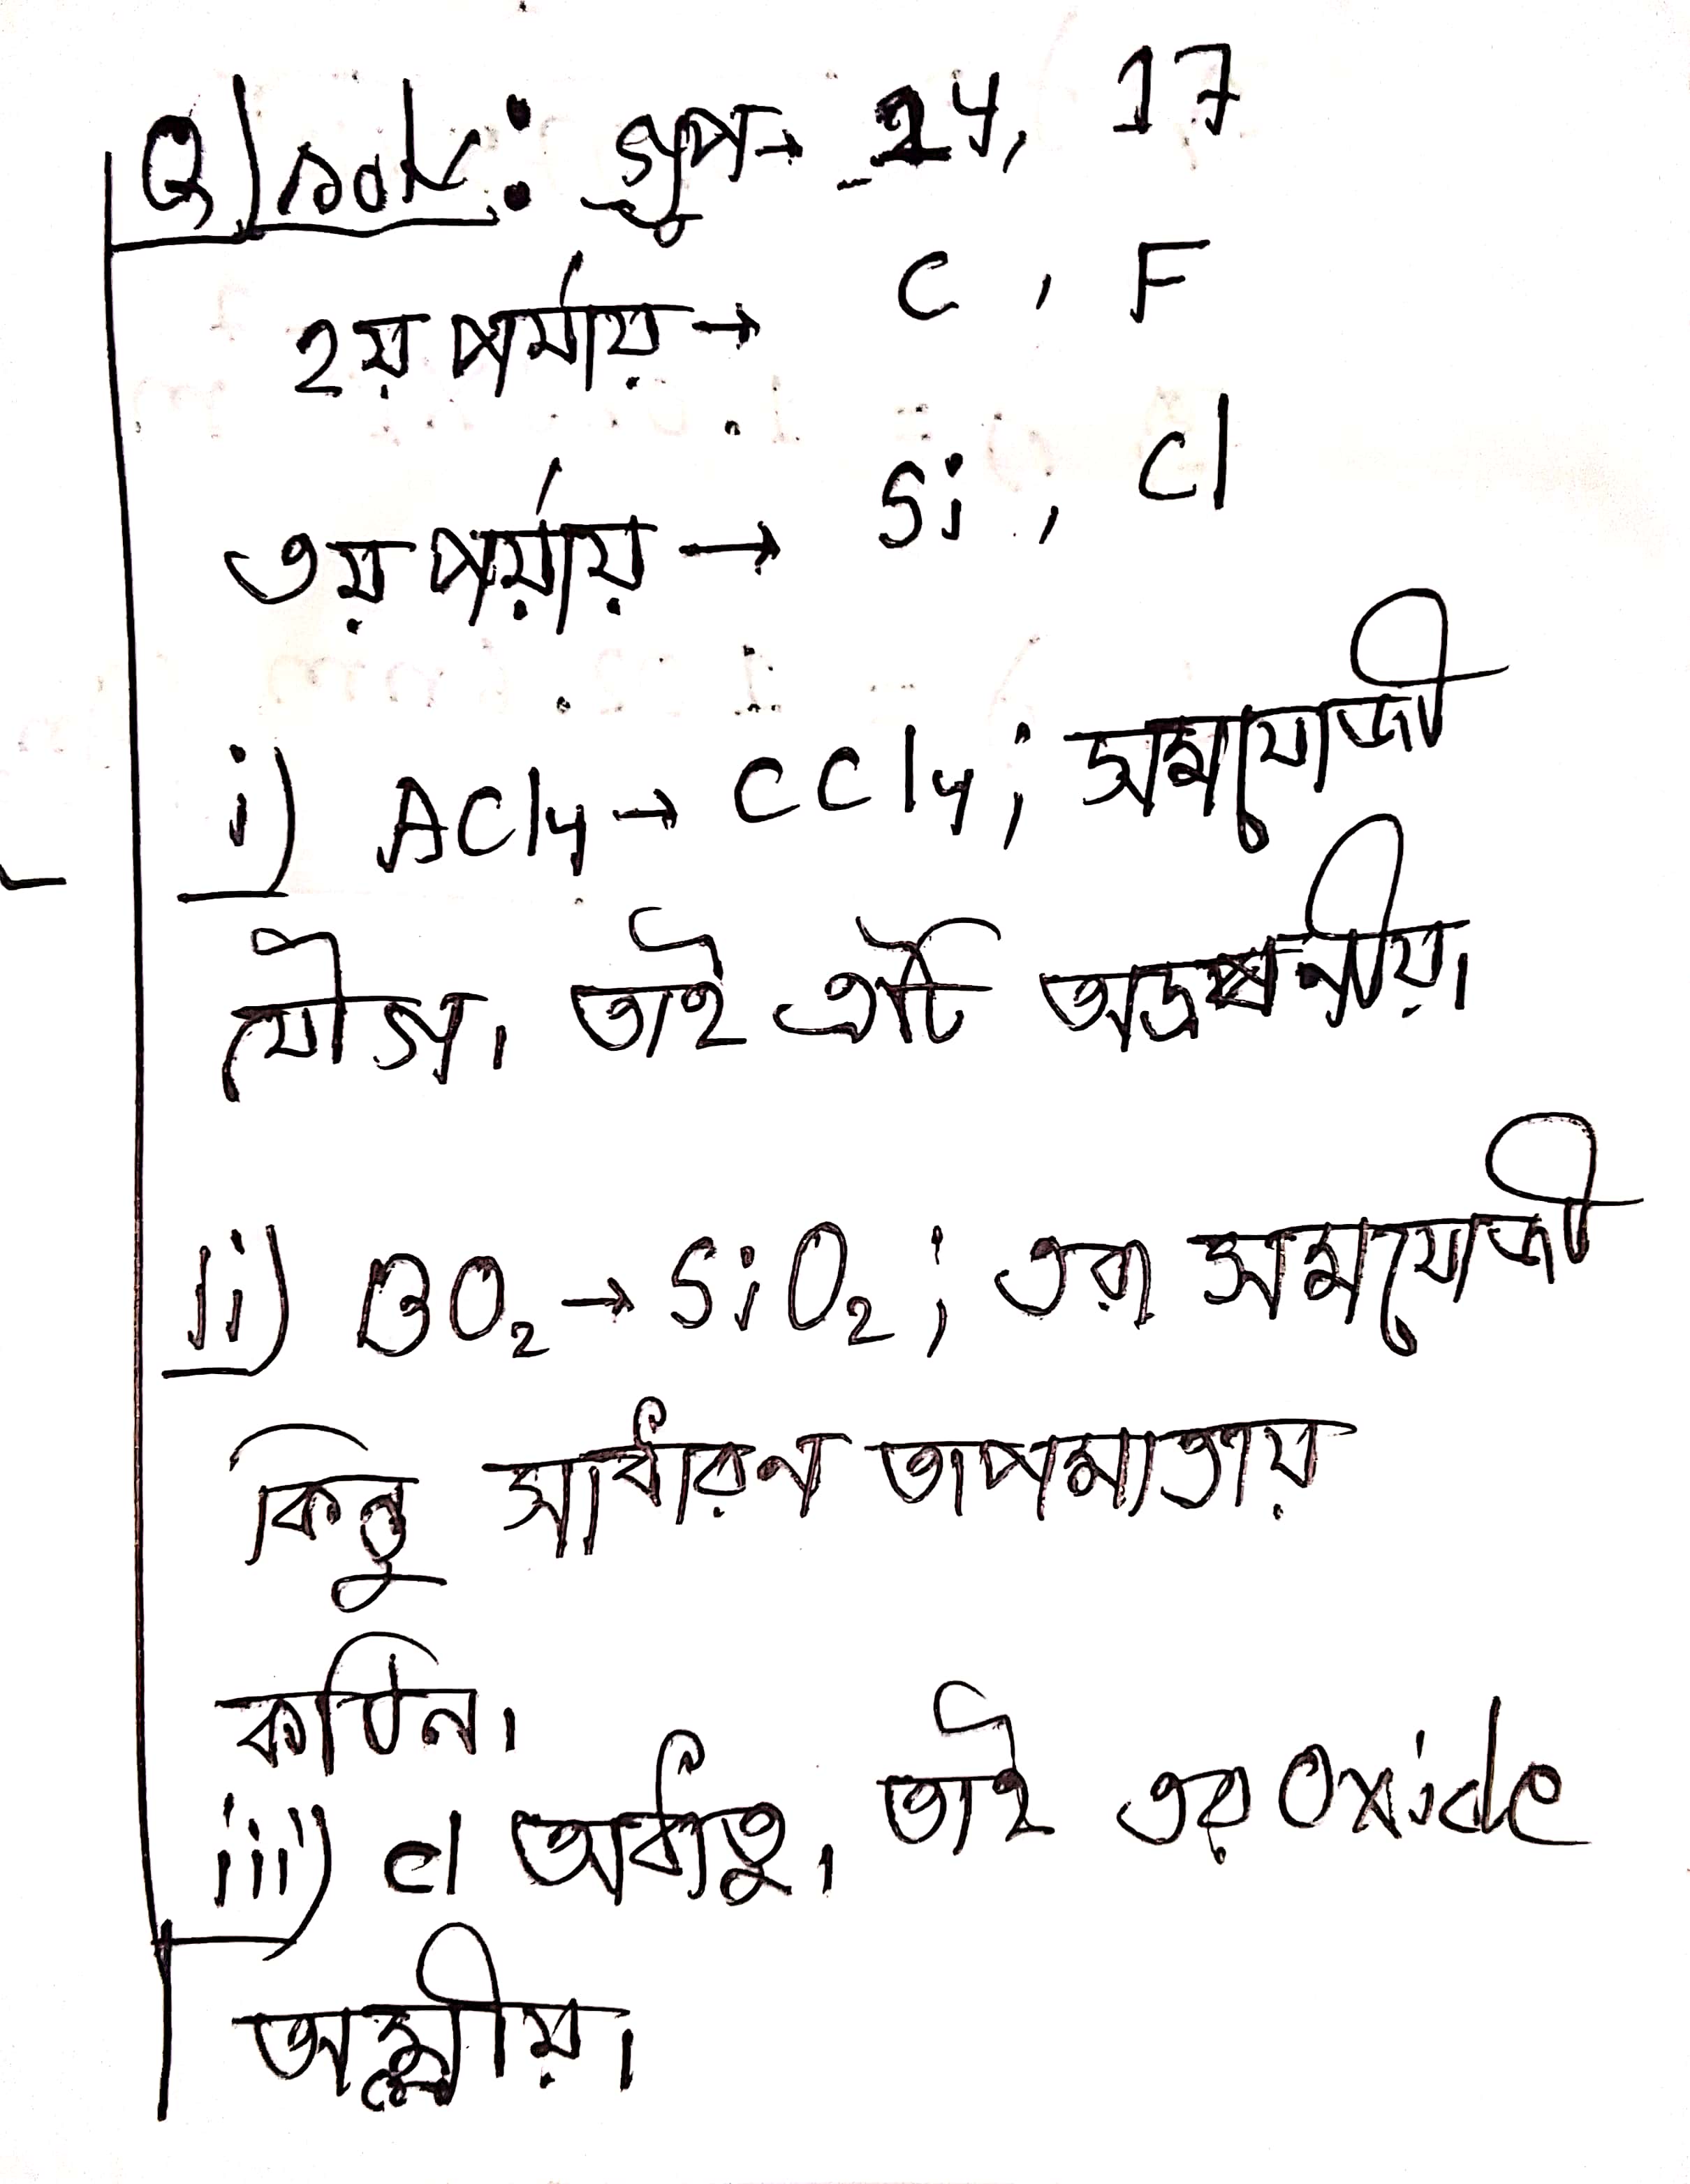 Q) solve: গ্রুপ → 14, 17
২য় পর্যায় → C, F
৩য় পর্যায় → Si, Cl
i) ACl4 → CCl4; সমযোজী
যৌগ। তাই এটি অদ্রবনীয়।
ii) BO₂ → SiO₂; এরা সমযোজী
কিন্তু সাধারন তাপমাত্রায়
কঠিন।
iii) Cl অধাতু, তাই এর oxide
অম্লীয়।